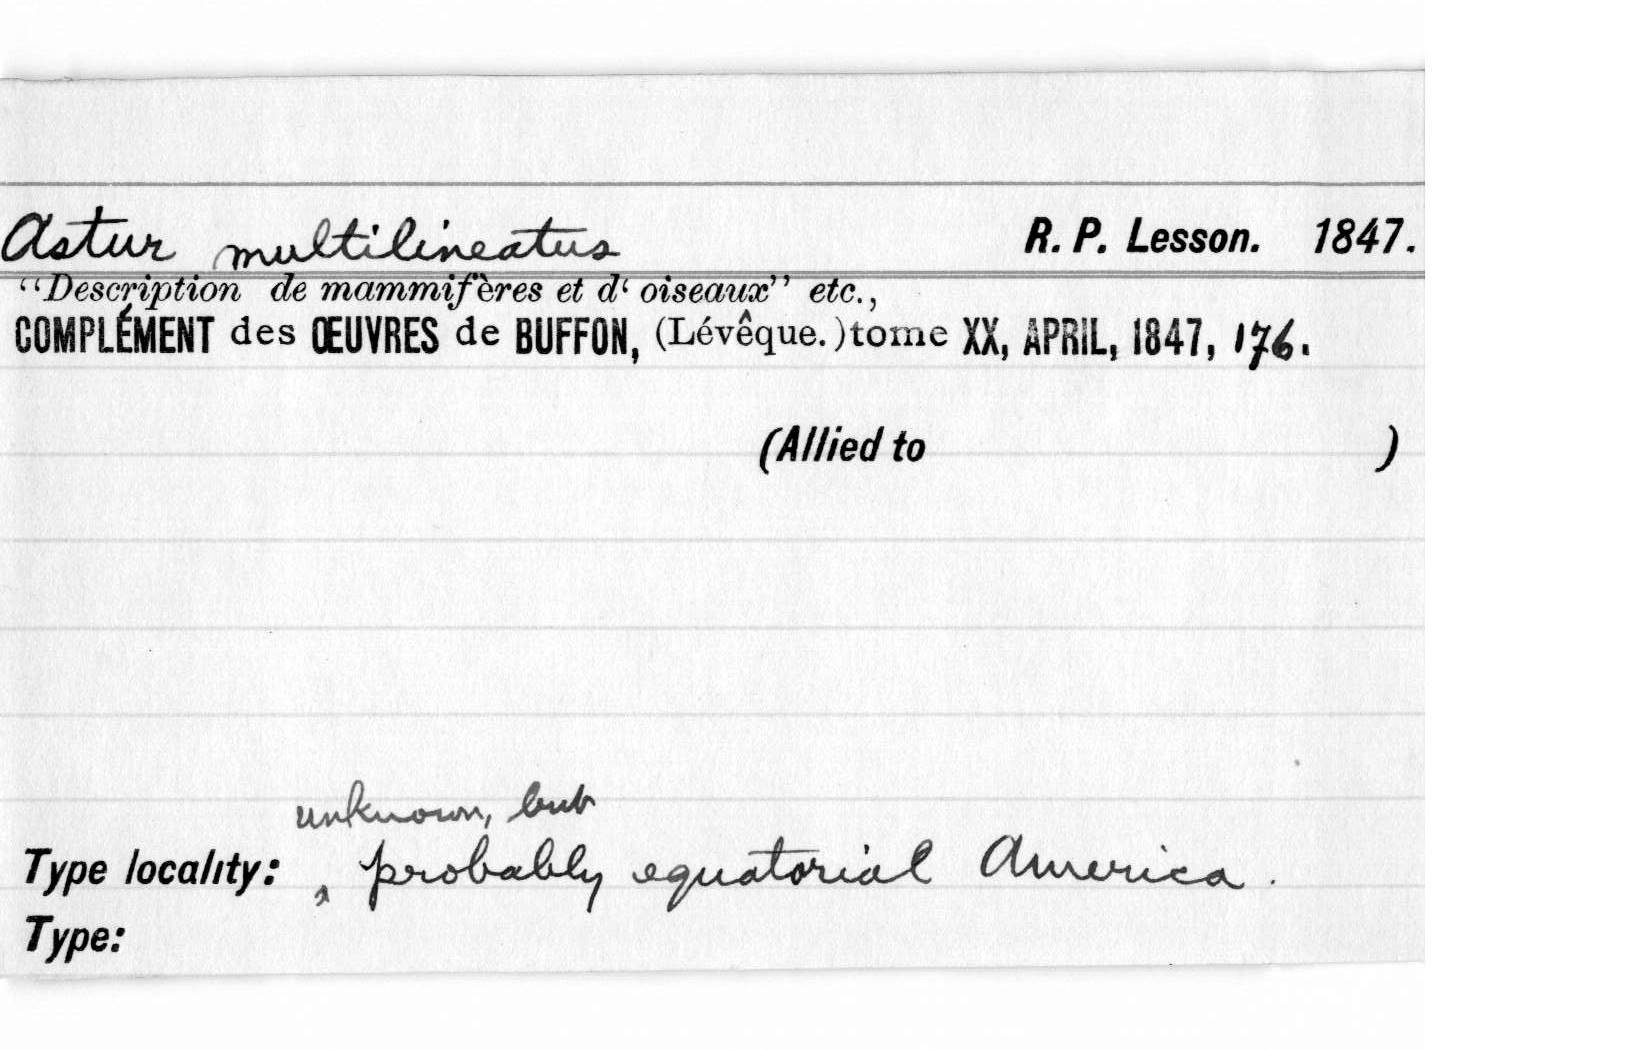 Astur multilineatus R. P. Lesson. 1847.
“Description de mammifères et d‘ oiseaux” etc.,
COMPLÉMENT des ŒUVRES de BUFFON, (Lévêque.) tome XX, APRIL, 1847, 176.
(Allied to )
unknown, but
Type locality: ‸ probably equatorial America.
Type: